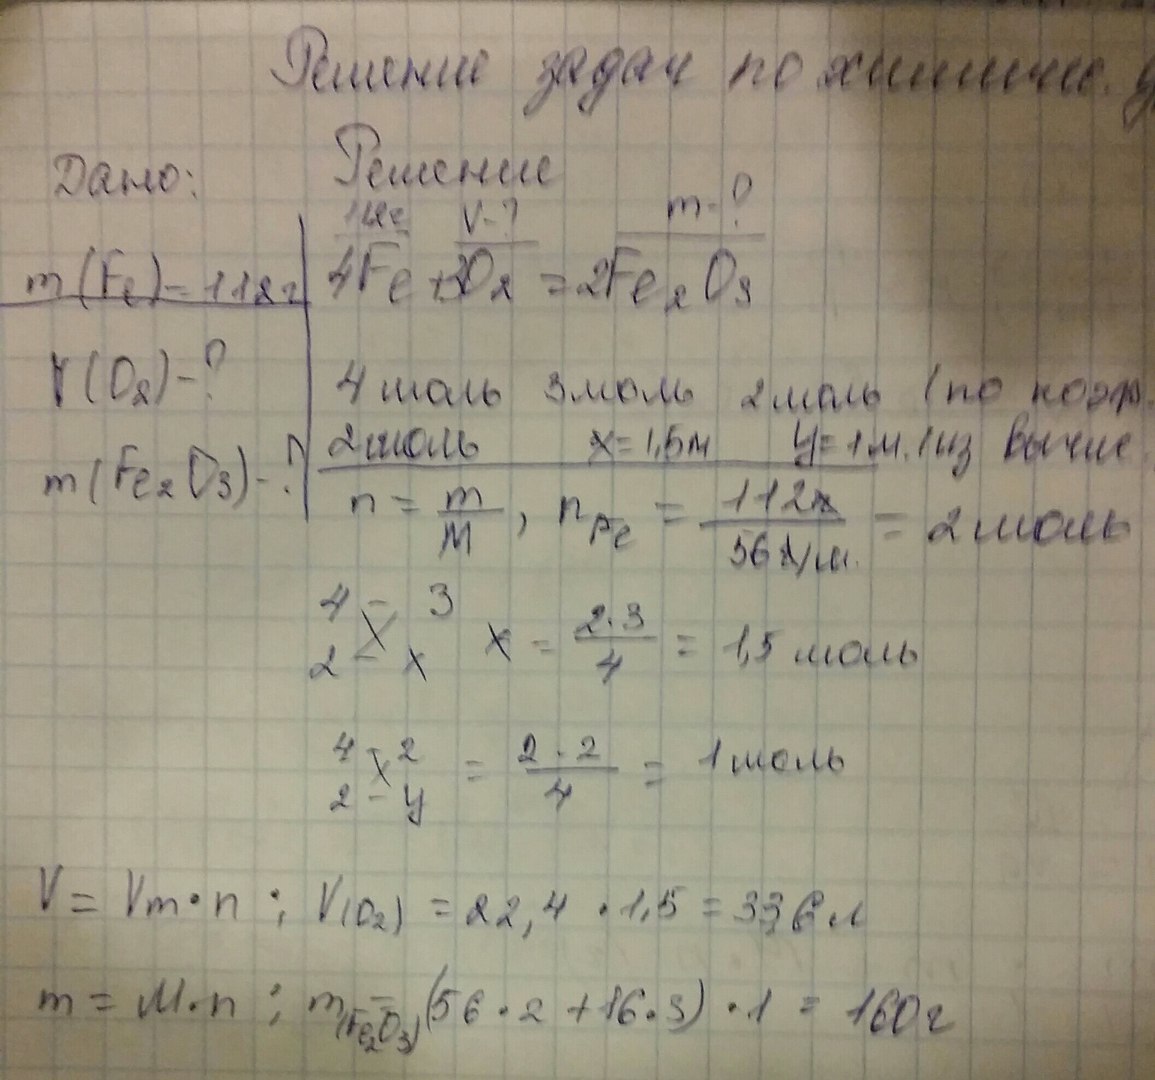 Решение задач по химиче. у
Дано:
Решение
112г V-? m-?
m(Fe)-112г
4Fe+3O₂=2Fe₂O₃
V(O₂)-?
4 моль 3 моль 2 моль (по коэф.
m(Fe₂O₃)-?
2 моль x=1,5м y=1м. (из вычис.
n = m/M, nFe = 112г/56г/м. = 2 моль
4 - 3
2 - x
x = 2·3/4 = 1,5 моль
4 - 2
2 - y
= 2·2/4 = 1 моль
V = Vm·n ; V(O₂) = 22,4 · 1,5 = 33,6 л
m = M·n ; m(Fe₂O₃) = (56·2+16·3)·1 = 160г